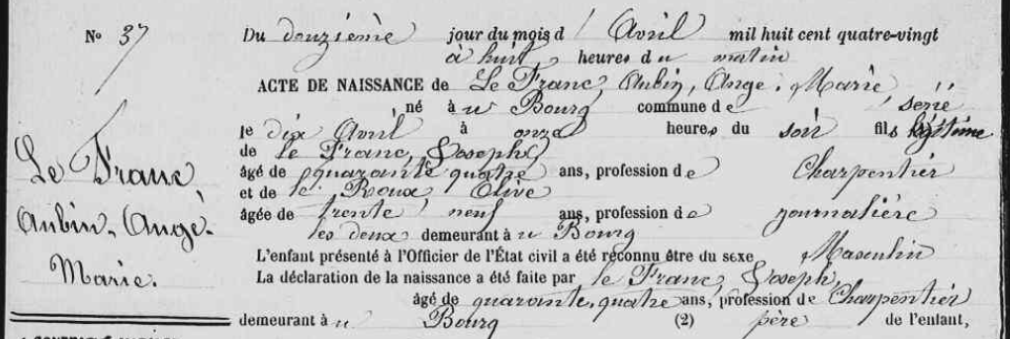 No 37
Le Franc,
Aubin, Ange.
Marie.
Du douzième jour du mois d'Avril mil huit cent quatre-vingt
à huit heures du matin
ACTE DE NAISSANCE de Le Franc, Aubin, Ange. Marie
né à u Bourg commune de sérié
le dix Avril à onze heures du soir fils légitime
de le Franc, Joseph,
âgé de quarante quatre ans, profession de Charpentier
et de le Roux Olive
âgée de trente neuf ans, profession de journalière
les deux demeurant à u Bourg
L'enfant présenté à l'Officier de l'État civil a été reconnu être du sexe Masculin
La déclaration de la naissance a été faite par le Franc, Joseph,
âgé de quarante, quatre ans, profession de Charpentier
demeurant à u Bourg (2) père de l'enfant,